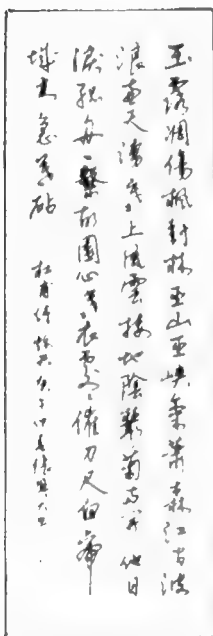 玉露凋傷楓樹林巫山巫峽氣蕭森江間波
浪兼天湧塞上風雲接地陰叢菊兩開他日
淚孤舟一繫故園心寒衣處處催刀尺白帝
城高急暮砧 杜甫詩